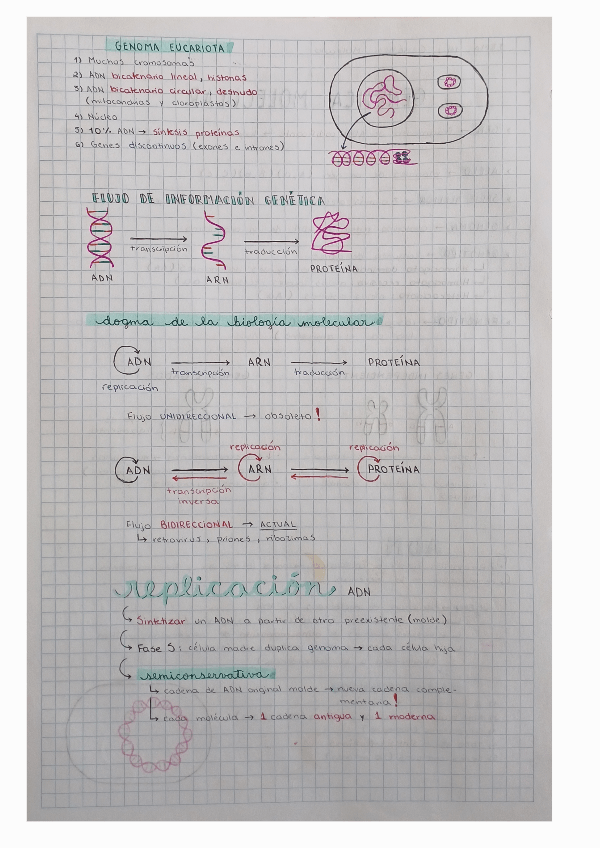 GENOMA EUCARIOTA
1) Muchos cromosomas
2) ADN bicatenario lineal, histonas
3) ADN bicatenario circular, desnudo
(mitocondrias y cloroplastos)
4) Núcleo
5) 10% ADN → síntesis proteínas
6) Genes discontinuos (exones e intrones)
FLUJO DE INFORMACIÓN GENÉTICA
transcripción traducción
ADN ARN PROTEÍNA
dogma de la biología molecular
ADN ARN PROTEÍNA
transcripción traducción
replicación
Flujo UNIDIRECCIONAL → obsoleto!
replicación replicación
ADN ARN PROTEÍNA
transcripción
inversa
Flujo BIDIRECCIONAL → ACTUAL
↳ retrovirus, priones, ribozimas
replicación ADN
↳ Sintetizar un ADN a partir de otro preexistente (molde)
↳ Fase S: célula madre duplica genoma → cada célula hija
↳ semiconservativa
↳ cadena de ADN original molde → nueva cadena comple-
mentaria!
↳ cada molécula → 1 cadena antigua y 1 moderna